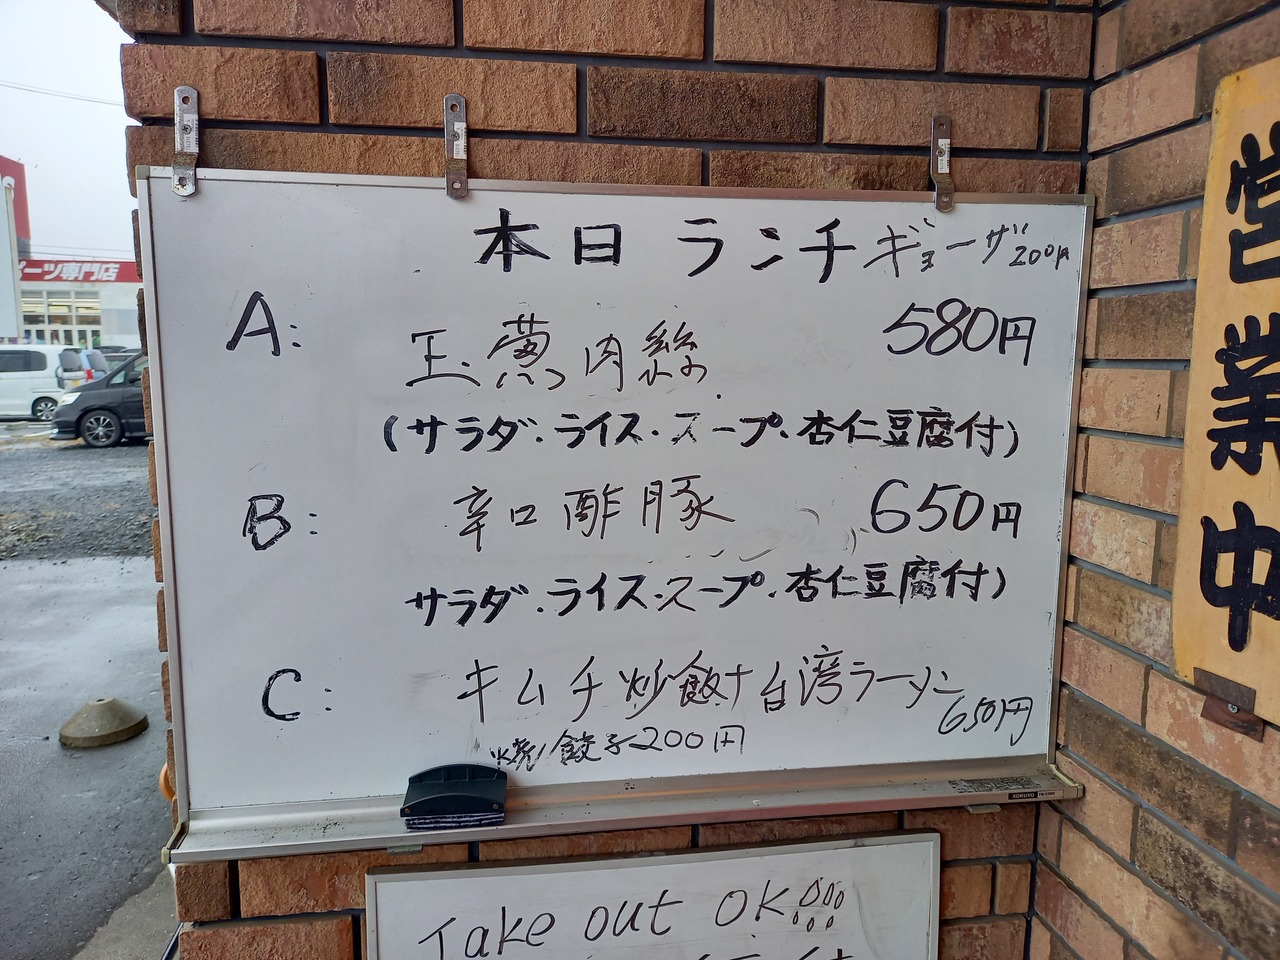 本日 ランチ ギョーザ200円
A: 玉葱肉絲 580円
(サラダ・ライス・スープ・杏仁豆腐付)
B: 辛口酢豚 650円
サラダ・ライス・スープ・杏仁豆腐付)
C: キムチ炒飯+台湾ラーメン 650円
焼餃子200円
KOKUYO
Take out OK
営業中
ーツ専門店